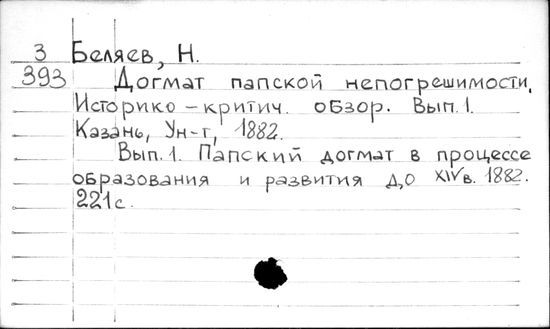 3 Беляев, Н.
393 Догмат папской непогрешимости.
Историко-критич. обзор. Вып. 1.
Казань, Ун-т, 1882.
Вып. 1. Папский догмат в процессе
образования и развития до XIV в. 1882.
221 с.